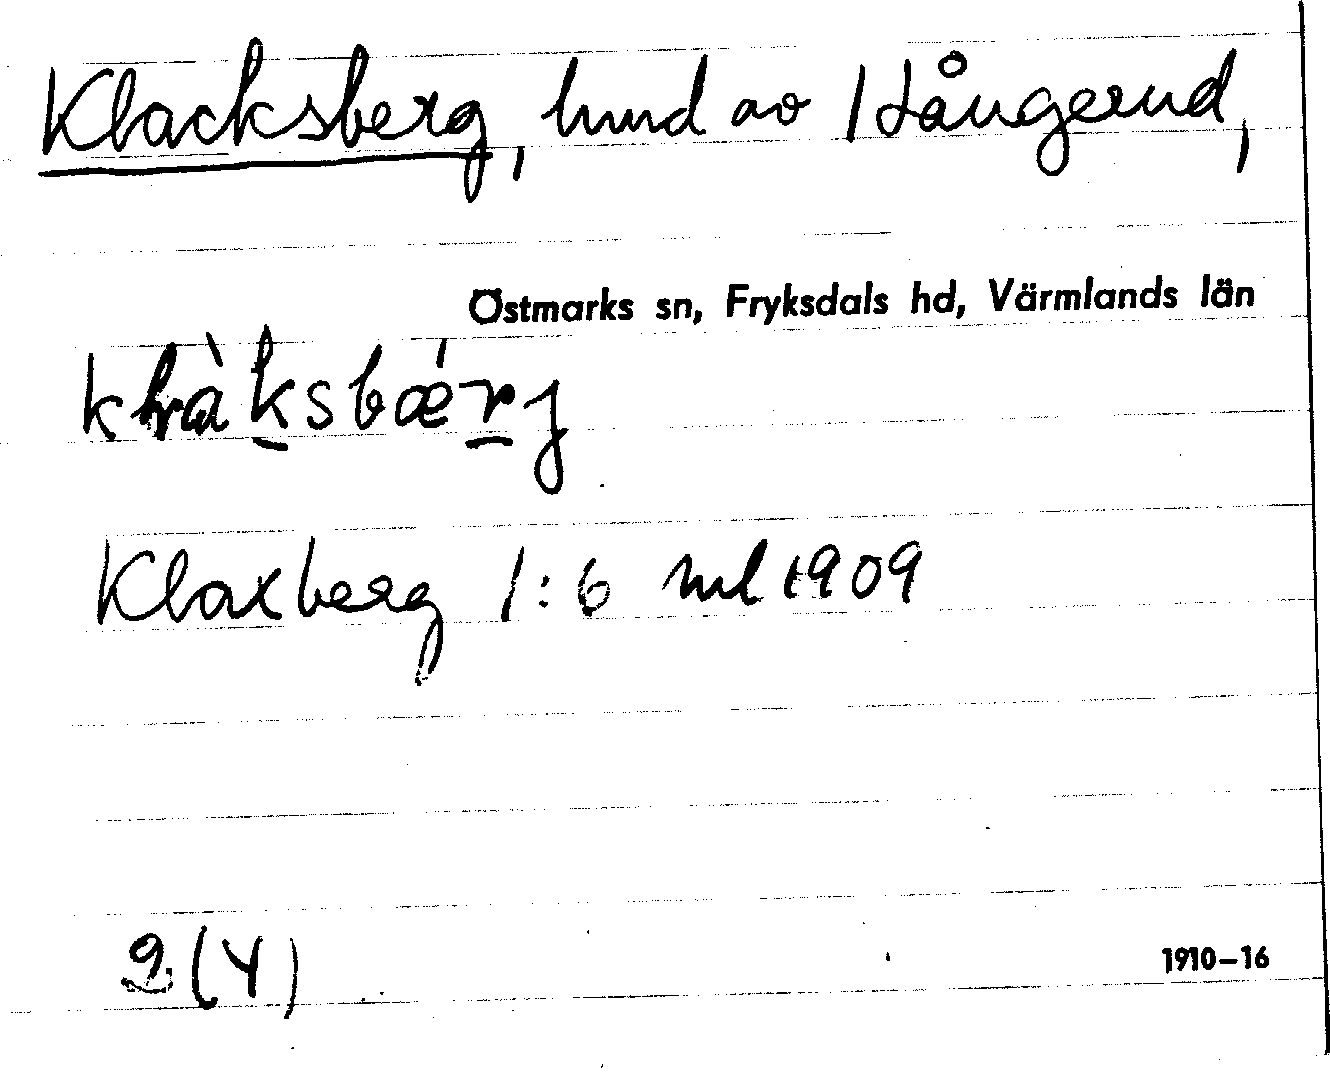 Klacksberg, hmd av Hångerud,
Östmarks sn, Fryksdals hd, Värmlands län
Klaxberg 1:6 ml 1909
2 (4)
1910–16